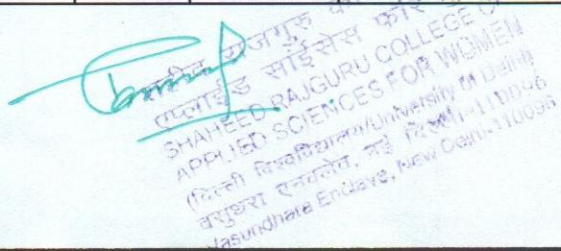 शहीद राजगुरु
एप्लाईड साईंसेस फॉर
SHAHEED RAJGURU COLLEGE OF
APPLIED SCIENCES FOR WOMEN
(दिल्ली विश्वविद्यालय/University of Delhi)
वसुंधरा एनक्लेव, नई दिल्ली-110096
Vasundhara Enclave, New Delhi-110096